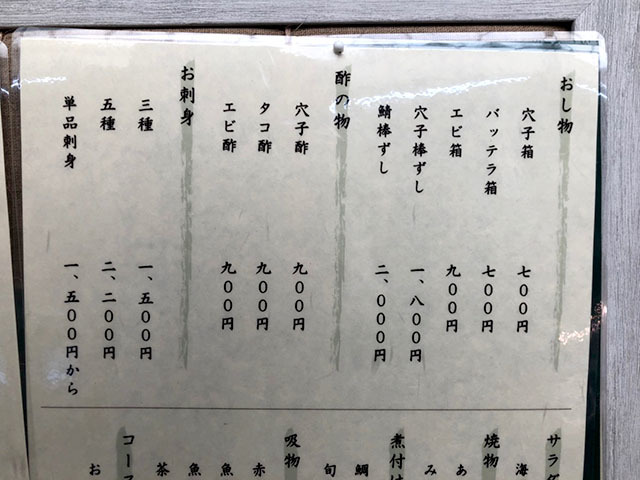 おし物
穴子箱 七〇〇円
バッテラ箱 七〇〇円
エビ箱 九〇〇円
穴子棒ずし 一、八〇〇円
鯖棒ずし 二、〇〇〇円
酢の物
穴子酢 九〇〇円
タコ酢 九〇〇円
エビ酢 九〇〇円
お刺身
三種 一、五〇〇円
五種 二、二〇〇円
単品刺身 一、五〇〇円から
サラダ
海
焼物
あ
み
煮付け
鯛
旬
吸物
赤
魚
魚
茶
コース
お